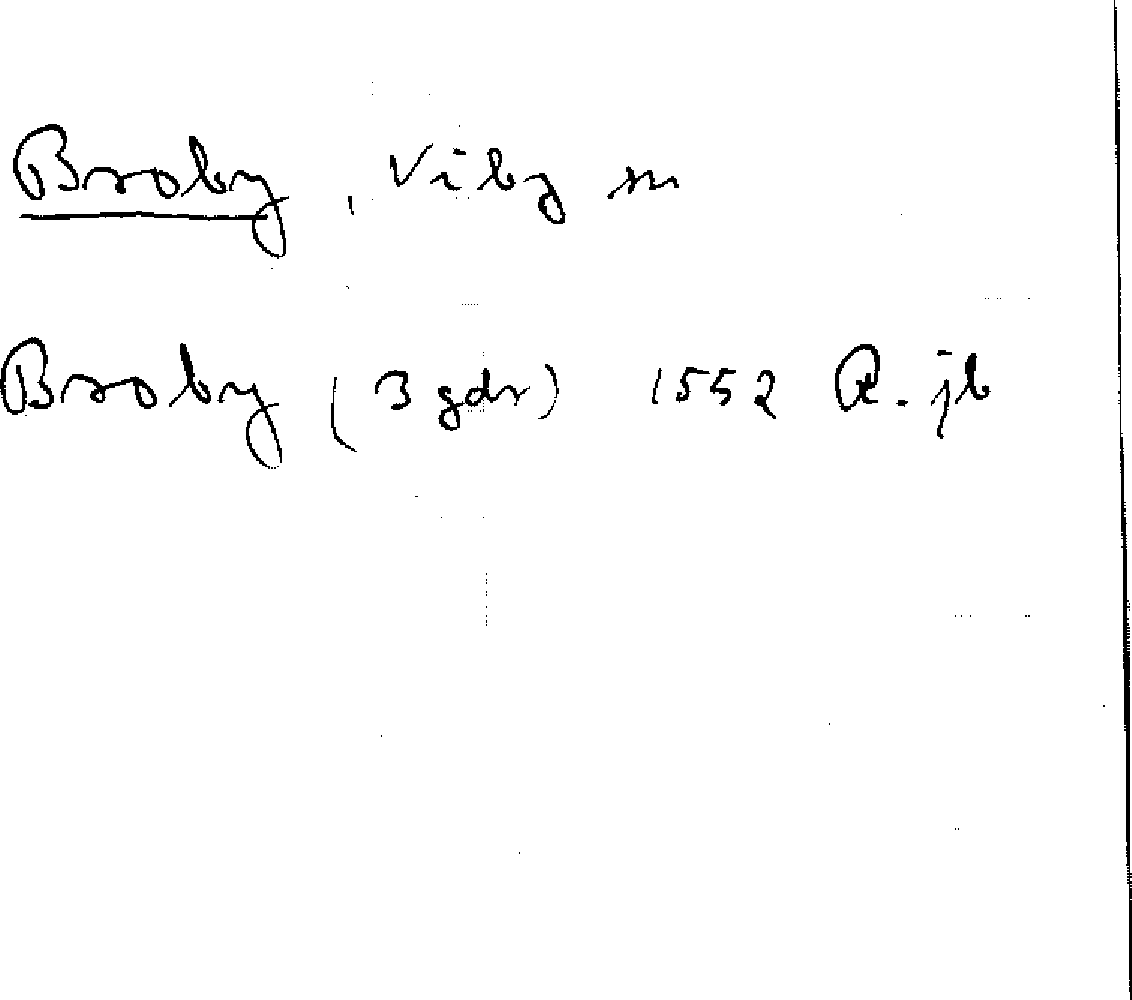 Broby, Viby sn
Broby (3 gdr) 1552 R. jb